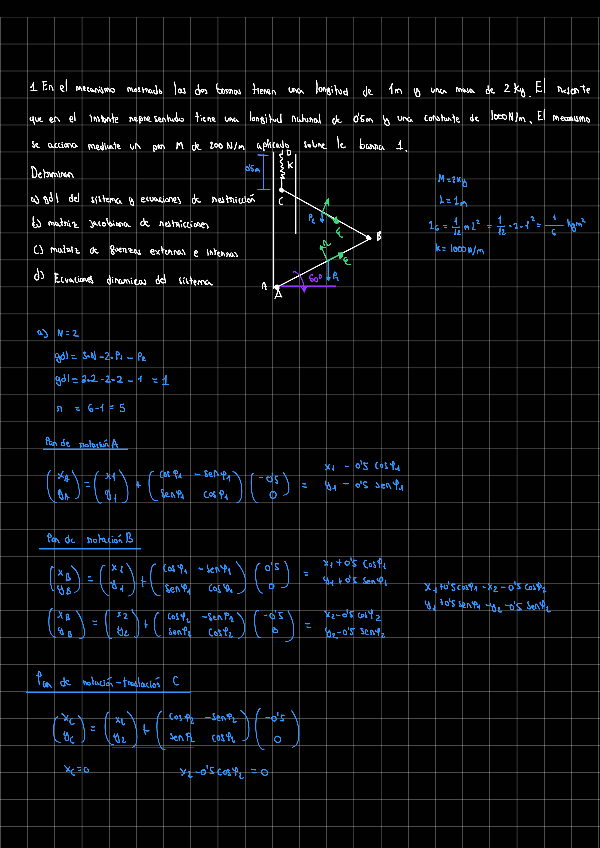 1 En el mecanismo mostrado las dos barras tienen una longitud de 1m y una masa de 2 Kg. El resorte
que en el instante representado tiene una longitud natural de 0'5m y una constante de 1000N/m. El mecanismo
se acciona mediante un par M de 200 N/m aplicado sobre la barra 1.
Determinar
a) gdl del sistema y ecuaciones de restricción
b) matriz jacobiana de restricciones
c) matriz de fuerzas externas e internas
d) Ecuaciones dinamicas del sistema
0'5m
D
K
C
P2
B
A
60º
P1
M=2Kg
L=1m
I_G = 1/12 m L² = 1/12 · 2 · 1² = 1/6 Kgm²
K=1000N/m
a) N=2
gdl = 3·N - 2·P1 - P2
gdl = 3·2 - 2·2 - 1 = 1
n = 6-1 = 5
Par de rotación A
(xA yA) = (x1 y1) + (cosφ1 -senφ1 senφ1 cosφ1) (-0'5 0) = x1 - 0'5 cosφ1
y1 - 0'5 senφ1
Par de rotación B
(xB yB) = (x1 y1) + (cosφ1 -senφ1 senφ1 cosφ1) (0'5 0) = x1+0'5 cosφ1
y1+0'5 senφ1
(xB yB) = (x2 y2) + (cosφ2 -senφ2 senφ2 cosφ2) (-0'5 0) = x2-0'5 cosφ2
y2-0'5 senφ2
x1+0'5cosφ1 -x2 -0'5cosφ2
y1+0'5senφ1 -y2 -0'5senφ2
Par de rotación-traslación C
(xC yC) = (x2 y2) + (cosφ2 -senφ2 senφ2 cosφ2) (-0'5 0)
xC=0
x2-0'5cosφ2 =0